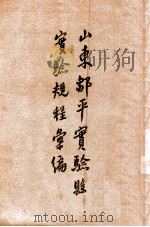 山東鄒平實驗縣
實驗規程彙編
www.toutodoc.com